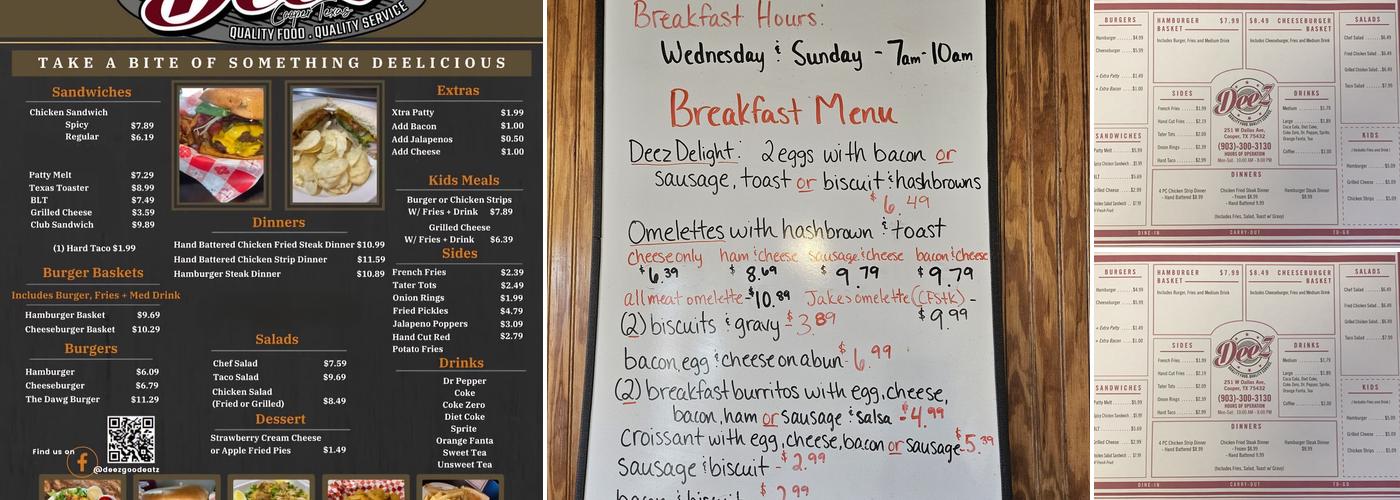 Deez
Cooper Texas
QUALITY FOOD . QUALITY SERVICE
TAKE A BITE OF SOMETHING DEELICIOUS
Sandwiches
Chicken Sandwich
Spicy $7.89
Regular $6.19
Patty Melt $7.29
Texas Toaster $8.99
BLT $7.49
Grilled Cheese $3.59
Club Sandwich $9.89
(1) Hard Taco $1.99
Burger Baskets
Includes Burger, Fries + Med Drink
Hamburger Basket $9.69
Cheeseburger Basket $10.29
Burgers
Hamburger $6.09
Cheeseburger $6.79
The Dawg Burger $11.29
Find us on
@deezgoodeatz
Dinners
Hand Battered Chicken Fried Steak Dinner $10.99
Hand Battered Chicken Strip Dinner $11.59
Hamburger Steak Dinner $10.89
Salads
Chef Salad $7.59
Taco Salad $9.69
Chicken Salad
(Fried or Grilled) $8.49
Dessert
Strawberry Cream Cheese
or Apple Fried Pies $1.49
Extras
Xtra Patty $1.99
Add Bacon $1.00
Add Jalapenos $0.50
Add Cheese $1.00
Kids Meals
Burger or Chicken Strips
W/ Fries + Drink $7.89
Grilled Cheese
W/ Fries + Drink $6.39
Sides
French Fries $2.39
Tater Tots $2.49
Onion Rings $1.99
Fried Pickles $4.79
Jalapeno Poppers $3.09
Hand Cut Red $2.79
Potato Fries
Drinks
Dr Pepper
Coke
Coke Zero
Diet Coke
Sprite
Orange Fanta
Sweet Tea
Unsweet Tea
Breakfast Hours:
Wednesday & Sunday - 7am-10am
Breakfast Menu
Deez Delight: 2 eggs with bacon or
sausage, toast or biscuit & hashbrowns
$6.49
Omelettes with hashbrown & toast
cheese only ham & cheese sausage & cheese bacon & cheese
$6.39 $8.69 $9.79 $9.79
all meat omelette - $10.89 Jake's omelette (CFStk) -
$9.99
(2) biscuits & gravy - $3.89
bacon, egg & cheese on a bun - $6.99
(2) breakfast burritos with egg, cheese,
bacon, ham or sausage & salsa - $4.99
Croissant with egg, cheese, bacon or sausage - $5.39
sausage & biscuit - $2.99
bacon & biscuit - $2.99
BURGERS
Hamburger $4.99
Cheeseburger $5.99
+ Extra Patty $1.49
HAMBURGER $7.99
BASKET
Includes Burger, Fries and Medium Drink
$8.49 CHEESEBURGER
BASKET
Includes Cheeseburger, Fries and Medium Drink
SALADS
Chef Salad $6.49
Fried Chicken Salad $6.49
Grilled Chicken Salad $6.49
Taco Salad $7.99
SIDES
French Fries $1.99
Hand Cut Fries $2.19
Tater Tots $2.09
Onion Rings $2.39
Hard Taco $2.99
Deez
251 W Dallas Ave,
Cooper, TX 75432
(903)-300-3130
HOURS OF OPERATION
Mon-Sat: 10:00 AM - 8:00 PM
DRINKS
Medium $1.79
Large $1.89
Coca Cola, Diet Coke,
Coke Zero, Dr. Pepper, Sprite,
Orange Fanta, Tea
Coffee
SANDWICHES
Patty Melt $5.99
KIDS
(Includes Fries and Drink)
Hamburger $5.09
Grilled Cheese $5.09
Chicken Strips $5.09
DINNERS
4 PC Chicken Strip Dinner
- Hand Battered $8.99
Chicken Fried Steak Dinner
- Frozen $8.99
- Hand Battered 9.99
Hamburger Steak Dinner
$8.99
(Includes Fries, Salad, Toast w/ Gravy)
DINE-IN CARRY-OUT TO-GO
BURGERS
Hamburger $4.99
Cheeseburger $5.99
+ Extra Patty $1.49
HAMBURGER $7.99
BASKET
Includes Burger, Fries and Medium Drink
$8.49 CHEESEBURGER
BASKET
Includes Cheeseburger, Fries and Medium Drink
SALADS
Chef Salad $6.49
Fried Chicken Salad $6.49
Grilled Chicken Salad $6.49
Taco Salad $7.99
SIDES
French Fries $1.99
Hand Cut Fries $2.19
Tater Tots $2.09
Onion Rings $2.39
Hard Taco $2.99
Deez
251 W Dallas Ave,
Cooper, TX 75432
(903)-300-3130
HOURS OF OPERATION
Mon-Sat: 10:00 AM - 8:00 PM
DRINKS
Medium $1.79
Large $1.89
Coca Cola, Diet Coke,
Coke Zero, Dr. Pepper, Sprite,
Orange Fanta, Tea
Coffee
SANDWICHES
Patty Melt $5.99
KIDS
(Includes Fries and Drink)
Hamburger $5.09
Grilled Cheese $5.09
Chicken Strips $5.09
DINNERS
4 PC Chicken Strip Dinner
- Hand Battered $8.99
Chicken Fried Steak Dinner
- Frozen $8.99
- Hand Battered 9.99
Hamburger Steak Dinner
$8.99
(Includes Fries, Salad, Toast w/ Gravy)
DINE-IN CARRY-OUT TO-GO